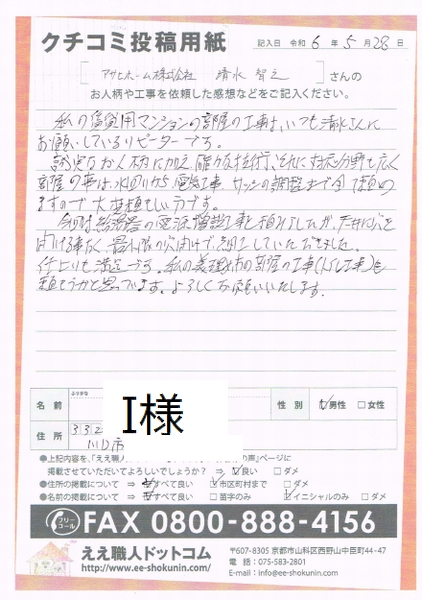 クチコミ投稿用紙
記入日 令和 6 年 5 月 28 日
アサヒホーム株式会社 清水 智之 さんの
お人柄や工事を依頼した感想などをご記入ください。
私の賃貸用マンションの部屋の工事は、いつも清水さんに
お願いしているリピーターです。
誠実なお人柄に加え確かな技術、それに対応分野も広く
部屋の事は水回りから電気工事 サッシの調整まで全て頼め
ますので大変頼もしい方です。
今回は給湯器の電源増設工事と
最小限の穴開けで施工していただきました。
仕上りも満足です。私の義理の姉の部屋の工事(トイレ工事)も
頼もうかと思っています。よろしくお願いいたします。
ふりがな
名前 I様 性別 ✓男性 □女性
住所 332
川口市
●上記内容を、「ええ職人 の声」ページに
掲載させていただいてよろしいでしょうか? ⇒ ✓良い □ダメ
●住所の掲載について ⇒ すべて良い ✓市区町村まで □ダメ
●名前の掲載について ⇒ すべて良い □苗字のみ ✓イニシャルのみ □ダメ
フリーコール FAX 0800-888-4156
ええ職人ドットコム
http://www.ee-shokunin.com/
〒607-8305 京都市山科区西野山中臣町44-47
電話:075-583-2801
E-mail:info@ee-shokunin.com